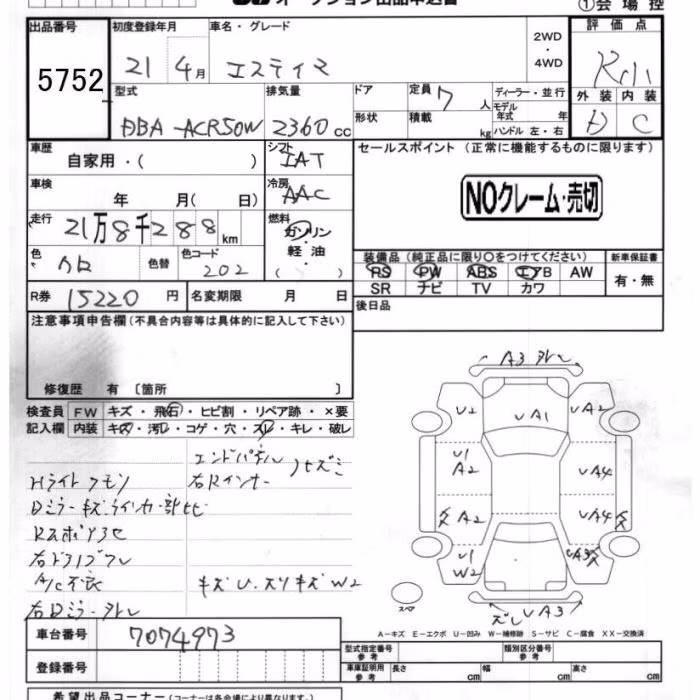 オークション出品申込書
①会場控
出品番号 初度登録年月 車名・グレード 評価点
5752
21年 4月 エスティマ 2WD・4WD
型式 排気量 ドア 定員 7人 ディーラー・並行
DBA-ACR50W 2360cc 形状 積載 kg モデル年式 年 ハンドル 左・右
外装 内装
D C
車歴 自家用・( ) シフト IAT
セールスポイント(正常に機能するものに限ります)
NOクレーム・売切
車検 年 月( 日) 冷房 AAC
走行 21万8千288km 燃料 ガソリン・軽油・( )
色 クロ 色替 色コード 202
装備品(純正品に限り○をつけてください) 新車保証書
PS PW ABS エアB AW 有・無
SR ナビ TV カワ
R券 15220円 名変期限 月 日
後日品
注意事項申告欄(不具合内容等は具体的に記入して下さい)
修復歴 有〔箇所 〕
検査員記入欄 FW キズ・飛石・ヒビ割・リペア跡・×要
内装 キズ・汚レ・コゲ・穴・スレ・キレ・破レ
エンドパネル
右Rインナー
Hライトクモリ
Dミラーキズ
A/C不良
キズU.スリキズW2
右Dミラー外レ
A3外レ
U2 UA1 UA2
U1
A2 UA4
A2 UA4
U1
W2 UA3
ズレ UA3
スペア
A-キズ E-エクボ U-凹み W-補修跡 S-サビ C-腐食 XX-交換済
車台番号 7074973
型式指定番号参考 類別区分番号参考
登録番号
車庫証明用参考 長さ cm 幅 cm 高さ cm
希望出品コーナー(コーナーは各会場により異なります。)